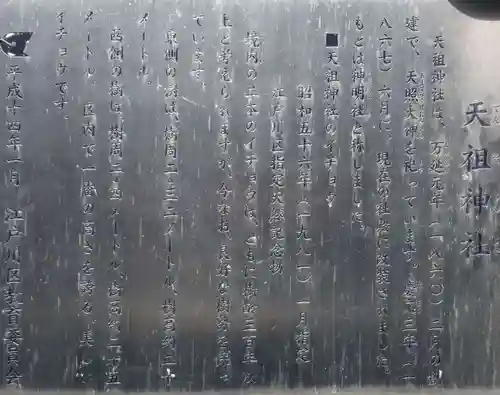 天祖神社
天祖神社は、万延元年(一八六〇)二月の創
建で、天照大神を祀っています。慶応三年(一
八六七)六月に、現在の社殿に改築されました。
もとは神明社と称しました。
■天祖神社のイチョウ
昭和五十六年(一九八一)一月指定
江戸川区指定天然記念物
境内の二本のイチョウは、ともに樹齢三百年以
上と考えられますが、今なお、良好な樹勢を保っ
ています。
東側の樹は、樹周 メートル、樹高約二十
メートル。
西側の樹は、樹周 メートル、樹高約二十五
メートル。区内で一番の高さを誇る、美しい
イチョウです。
平成十四年一月 江戸川区教育委員会